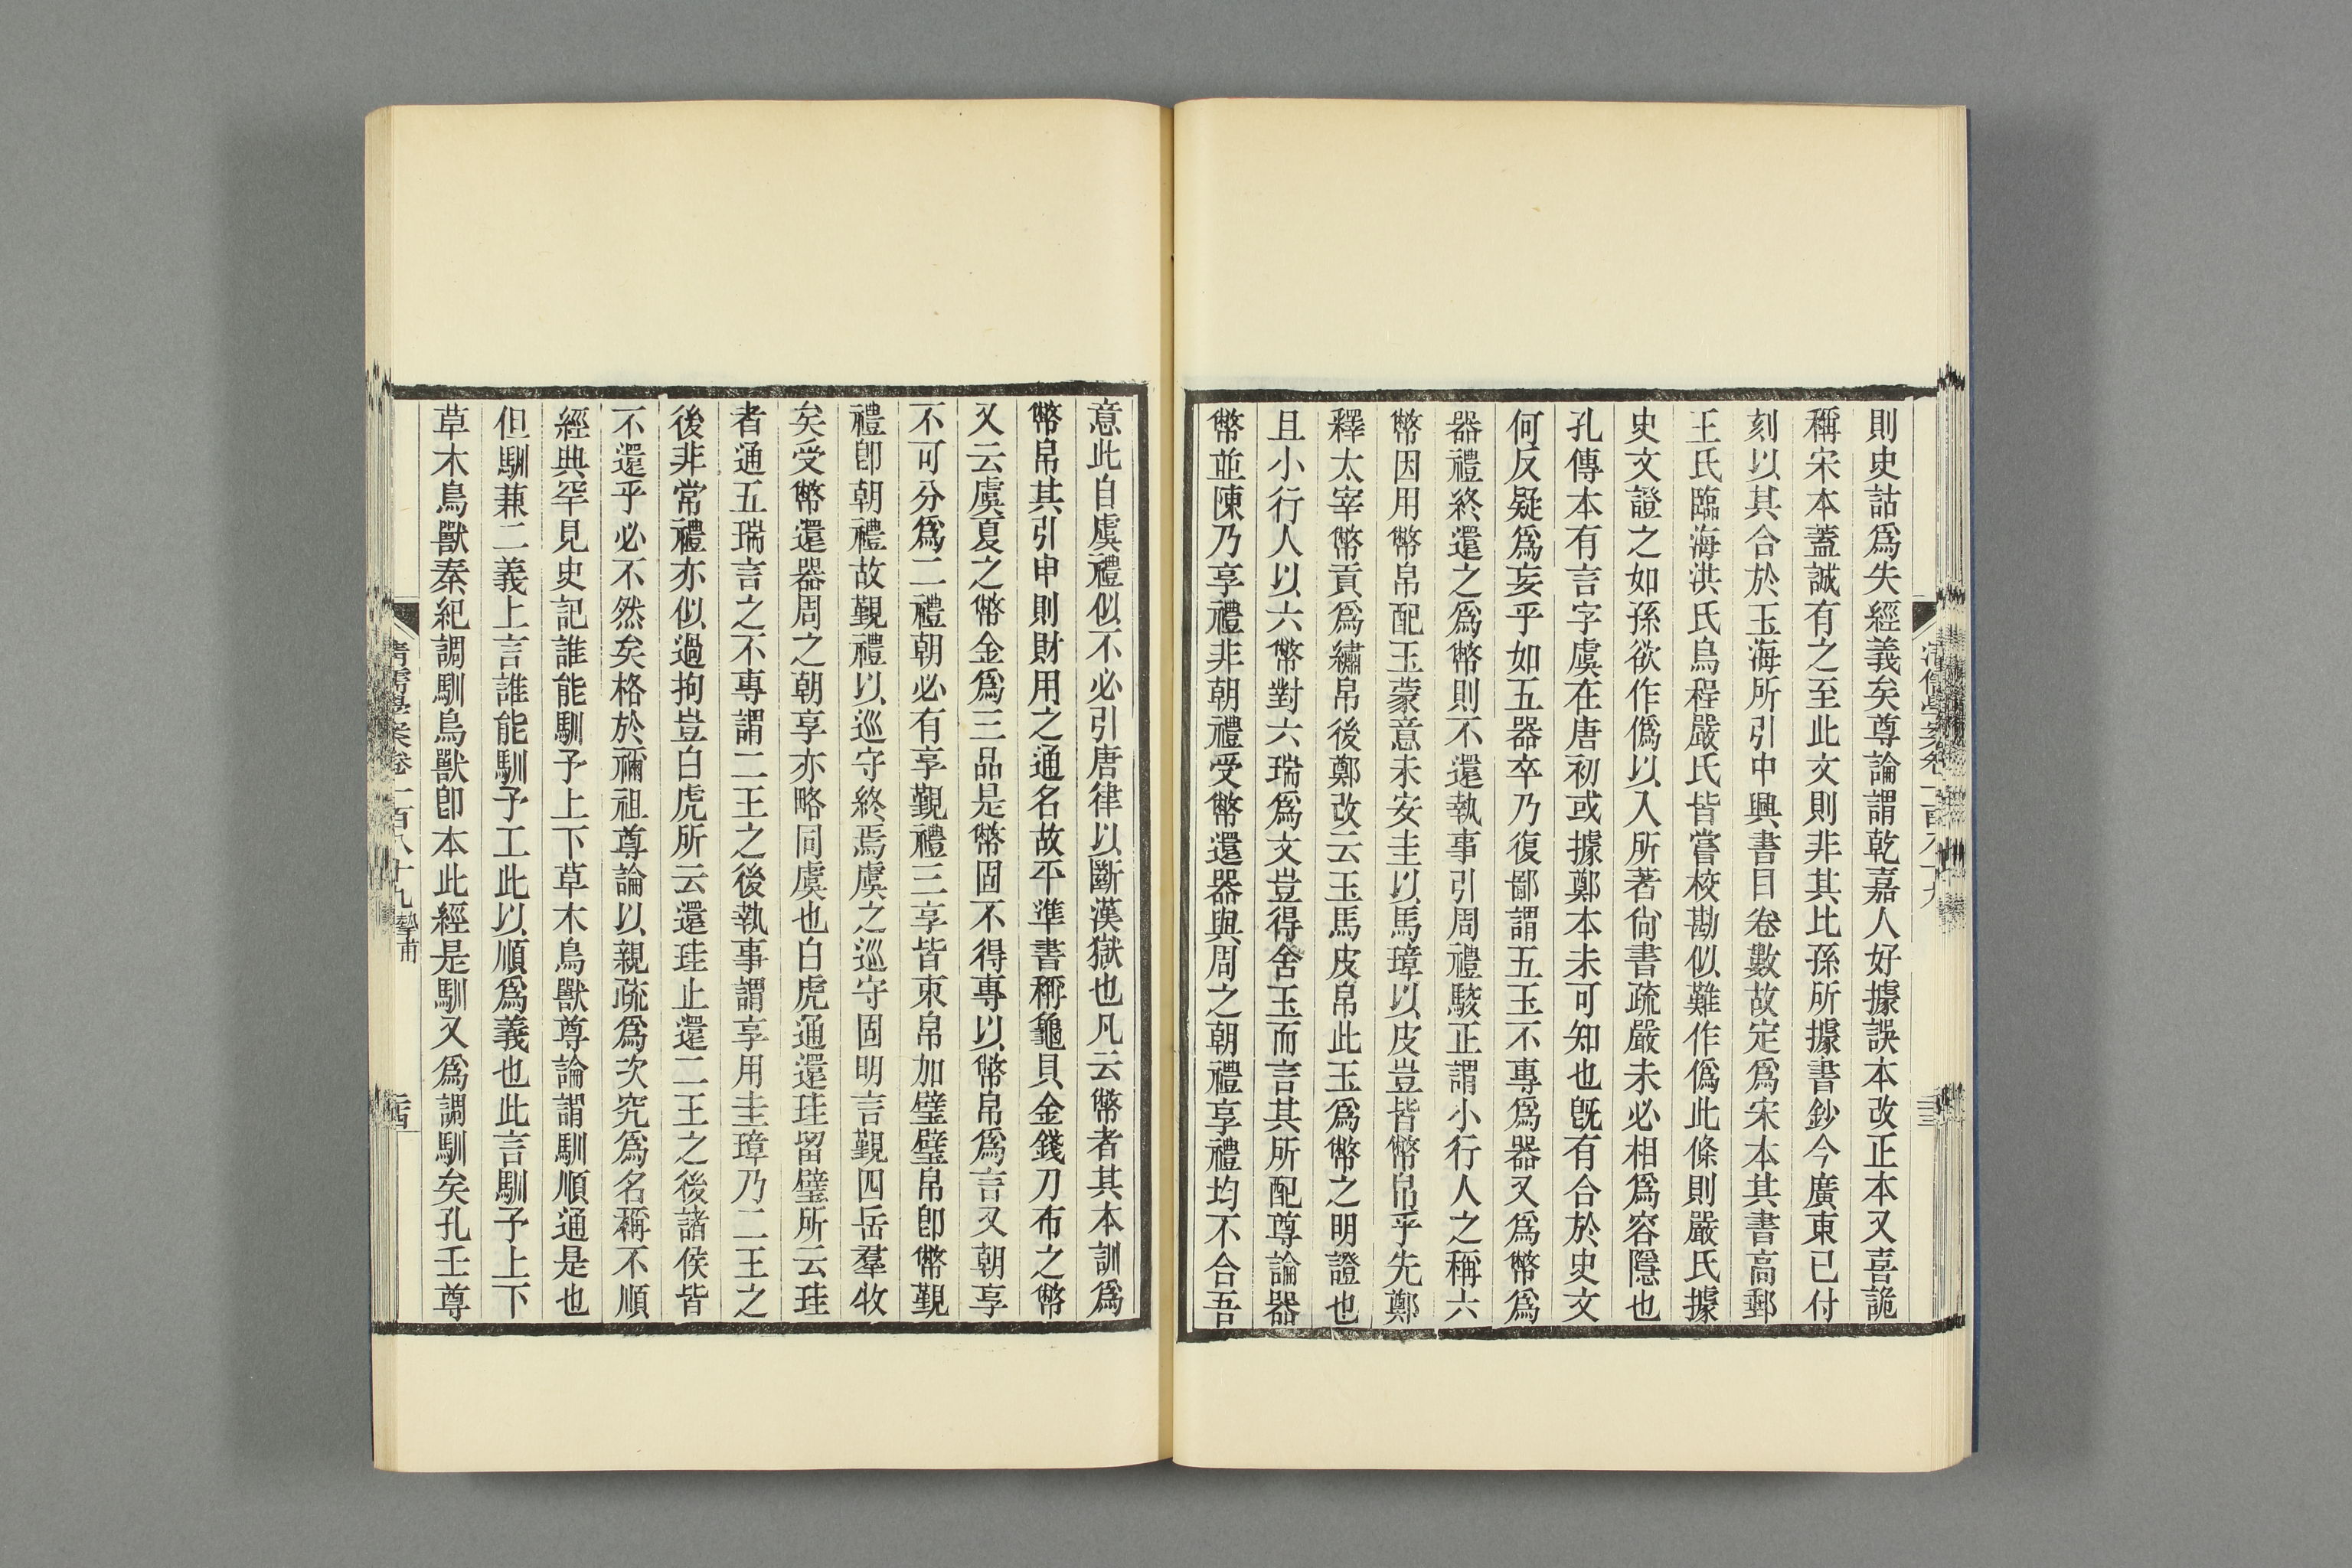 則史詁爲失經義矣尊論謂乾嘉人好據誤本改正本又喜詭
稱宋本蓋誠有之至此文則非其比孫所據書鈔今廣東已付
刻以其合於玉海所引中興書目卷數故定爲宋本其書高郵
王氏臨海洪氏烏程嚴氏皆嘗校勘似難作僞此條則嚴氏據
史文證之如孫欲作僞以入所著尙書疏嚴未必相爲容隱也
孔傳本有言字虞在唐初或據鄭本未可知也旣有合於史文
何反疑爲妄乎如五器卒乃復鄙謂五玉不專爲器又爲幣爲
器禮終還之爲幣則不還執事引周禮駿正謂小行人之稱六
幣因用幣帛配玉蒙意未安圭以馬璋以皮豈皆幣帛乎先鄭
釋太宰幣貢爲繡帛後鄭改云玉馬皮帛此玉爲幣之明證也
且小行人以六幣對六瑞爲文豈得舍玉而言其所配尊論器
幣並陳乃享禮非朝禮受幣還器與周之朝禮享禮均不合吾
意此自虞禮似不必引唐律以斷漢獄也凡云幣者其本訓爲
幣帛其引申則財用之通名故平準書稱龜貝金錢刀布之幣
又云虞夏之幣金爲三品是幣固不得專以幣帛爲言又朝享
不可分爲二禮朝必有享覲禮三享皆束帛加璧璧帛卽幣覲
禮卽朝禮故覲禮以巡守終焉虞之巡守固明言覲四岳羣牧
矣受幣還器周之朝享亦略同虞也白虎通還珪留璧所云珪
者通五瑞言之不專謂二王之後執事謂享用圭璋乃二王之
後非常禮亦似過拘豈白虎所云還珪止還二王之後諸侯皆
不還乎必不然矣格於禰祖尊論以親疏爲次究爲名稱不順
經典罕見史記誰能馴予上下草木鳥獸尊論謂馴順通是也
但馴兼二義上言誰能馴予工此以順爲義也此言馴予上下
草木鳥獸秦紀調馴鳥獸卽本此經是馴又爲調馴矣孔壬尊
清儒學案卷一百八十九 摯甫